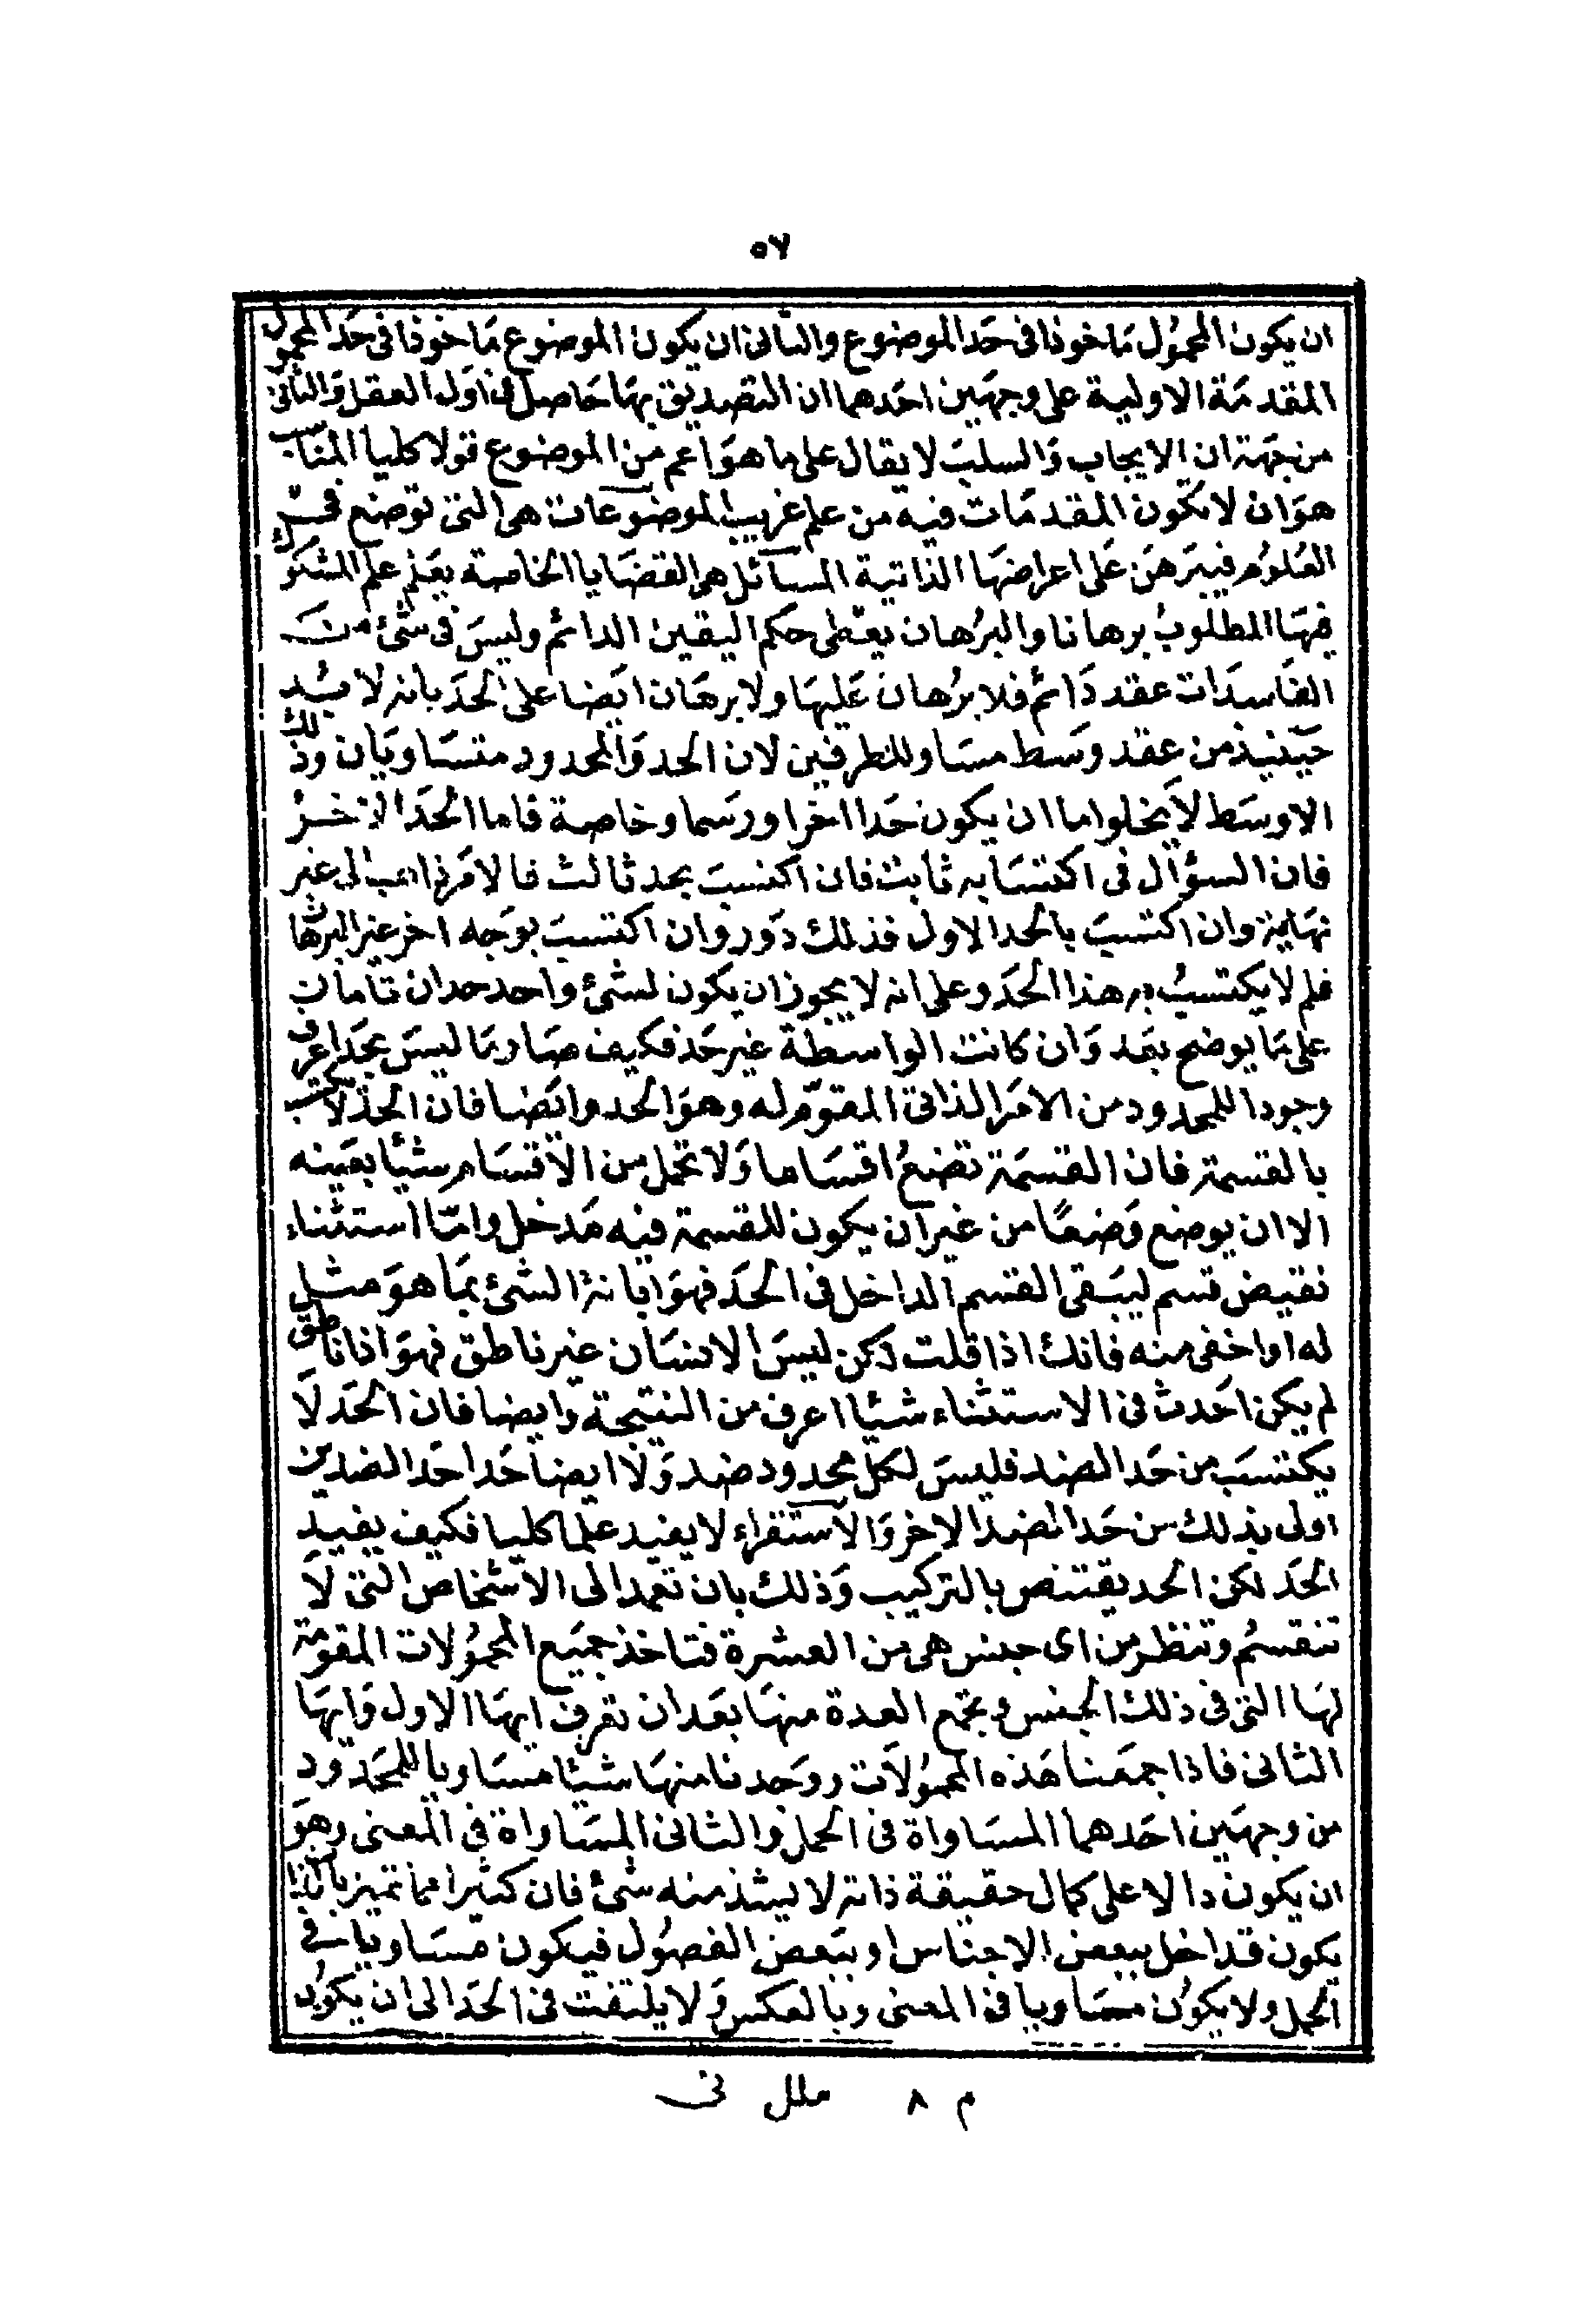 ٥٧
ان يكون المحمول ماخوذا فى حد الموضوع والثانى ان يكون الموضوع ماخوذا فى حد المحمول
المقدمة الاولية على وجهين احدهما ان التصديق بها حاصل فى اول العقل والثانى
من جهة ان الايجاب والسلب لا يقال على ما هو اعم من الموضوع قولا كليا المناسب
هو ان لا تكون المقدمات فيه من علم غريب الموضوعات هى التى توضع فى
العلوم فيبرهن على اعراضها الذاتية المسائل هى القضايا الخاصة بعلم علم المشكوك
فيها المطلوب برهانا والبرهان يعطى حكم اليقين الدائم وليس فى شئ من
الفاسدات عقد دائم فلا برهان عليها ولا برهان ايضا على الحد بانه لا بد
حينئذ من عقد وسط مساو للطرفين لان الحد والمحدود متساويان وذلك
الاوسط لا يخلوا اما ان يكون حدا اخرا ورسما وخاصة فاما الحد الاخر
فان السؤال فى اكتسابه ثابت فان اكتسب بحد ثالث فالامر ذاهب الى غير
نهاية وان اكتسب بالحد الاول فذلك دور وان اكتسب بوجه اخر غير البرهان
فلم لا يكتسب به هذا الحد وعلى انه لا يجوز ان يكون لشئ واحد حدان تامان
على ما يوضح بعد وان كانت الواسطة غير حد فكيف صار ما ليس بحد اعرف
وجودا للمحدود من الامر الذاتى المقوم له وهو الحد وايضا فان الحد لا يكتسب
بالقسمة فان القسمة تضع اقساما ولا تحمل من الاقسام شيئا بعينه
الا ان يوضع وضعا من غير ان يكون للقسمة فيه مدخل واما استثناء
نقيض قسم ليبقى القسم الداخل فى الحد فهو ابانة الشئ بما هو مثل
له او اخفى منه فانك اذا قلت لكن ليس الانسان غير ناطق فهو اذا ناطق
لم يكن احدث فى الاستثناء شيئا اعرف من النتيجة وايضا فان الحد لا
يكتسب من حد الضد فليس لكل محدود ضد ولا ايضا حد احد الضدين
اولى بذلك من حد الضد الاخر والاستقراء لا يفيد علما كليا فكيف يفيد
الحد لكن الحد يقتنص بالتركيب وذلك بان تعمد الى الاشخاص التى لا
تنقسم وتنظر من اى جنس هى من العشرة فتاخذ جميع المحمولات المقومة
لها التى فى ذلك الجنس وتجمع العدة منها بعد ان تعرف ايها الاول وايها
الثانى فاذا جمعنا هذه المحمولات ووجدنا منها شيئا مساويا للمحدود
من وجهين احدهما المساواة فى الحمل والثانى المساواة فى المعنى وهو
ان يكون دالا على كمال حقيقة ذاته لا يشذ منه شئ فان كثيرا مما تميز بالذات
يكون قد اخل ببعض الاجناس او ببعض الفصول فيكون مساويا فى
الحمل ولا يكون مساويا فى المعنى وبالعكس ولا يلتفت فى الحد الى ان يكون
م ٨ ملل نى